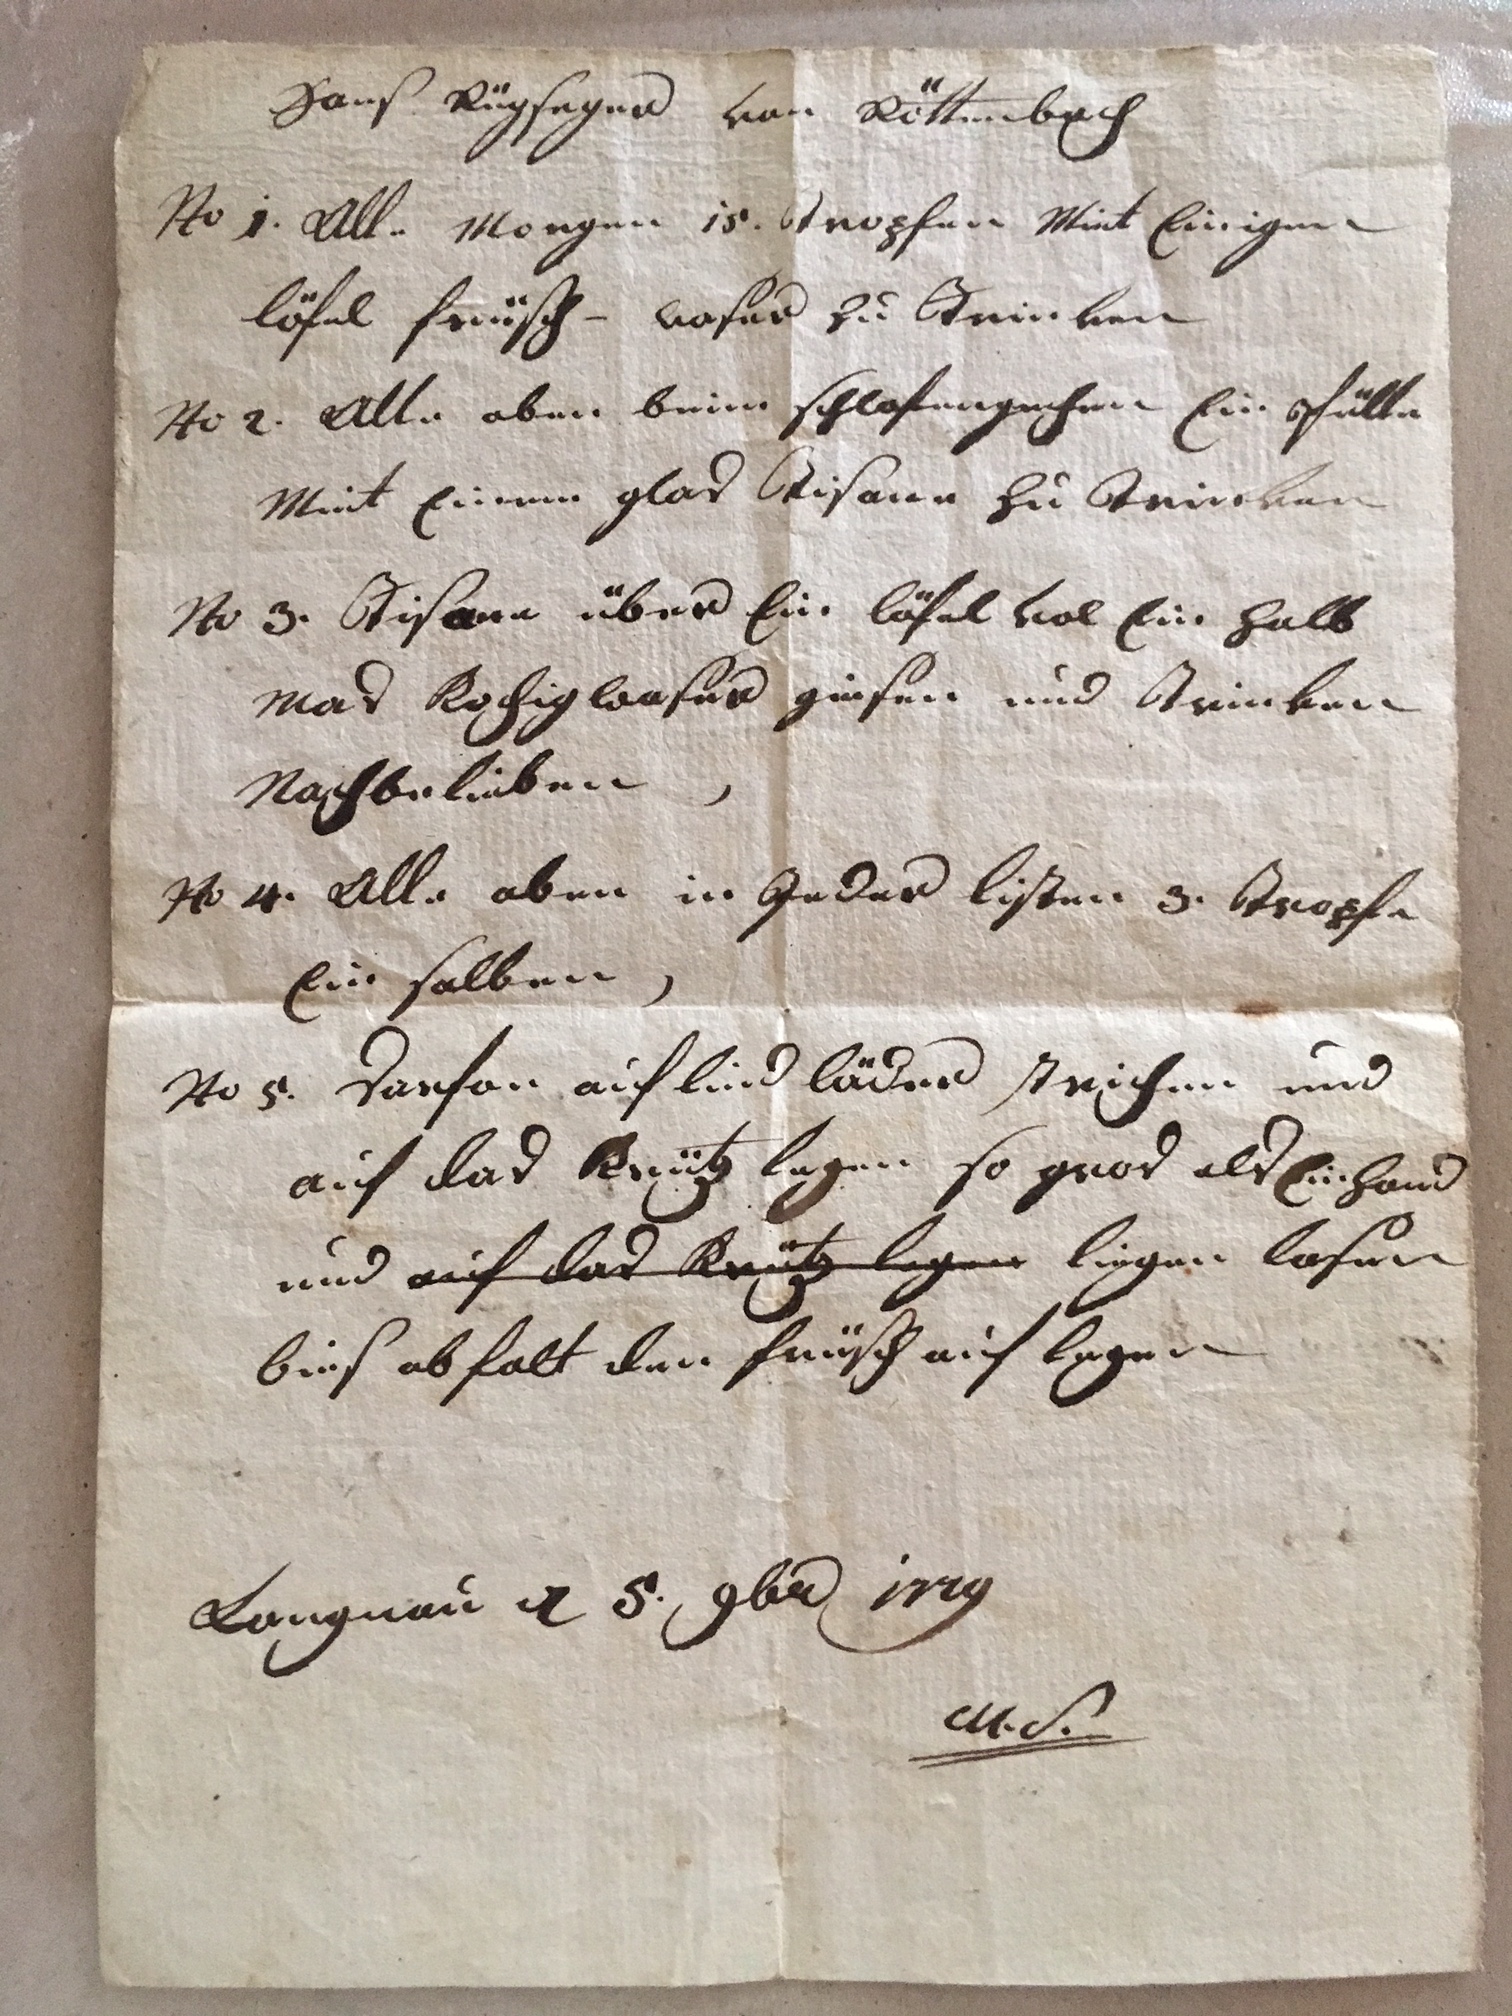 Hans Rügseger von Röttenbach
No 1. Alle Morgen 15. Tropfen Mint Einigen
löfel früsch- waser zu Trinken
No 2. Alle aben beim schlafengehen Ein Pfülle
Mint Einem glas Tisane zu Trinken
No 3. Tisane über Ein löfel vol Ein halb
Mas Kochigwaser giesen und Trinken
Nachbelieben ,
No 4. Alle aben in Jeder listen 3. Tropfe
Ein salben ,
No 5. Darfon auf lind läder strichen und
auf das Krütz legen so gros als Ein hand
und auf das Krütz legen liegen lasen
bies abfalt den früsch auf legen
Langnau d 5. 9br 1779
M.S.